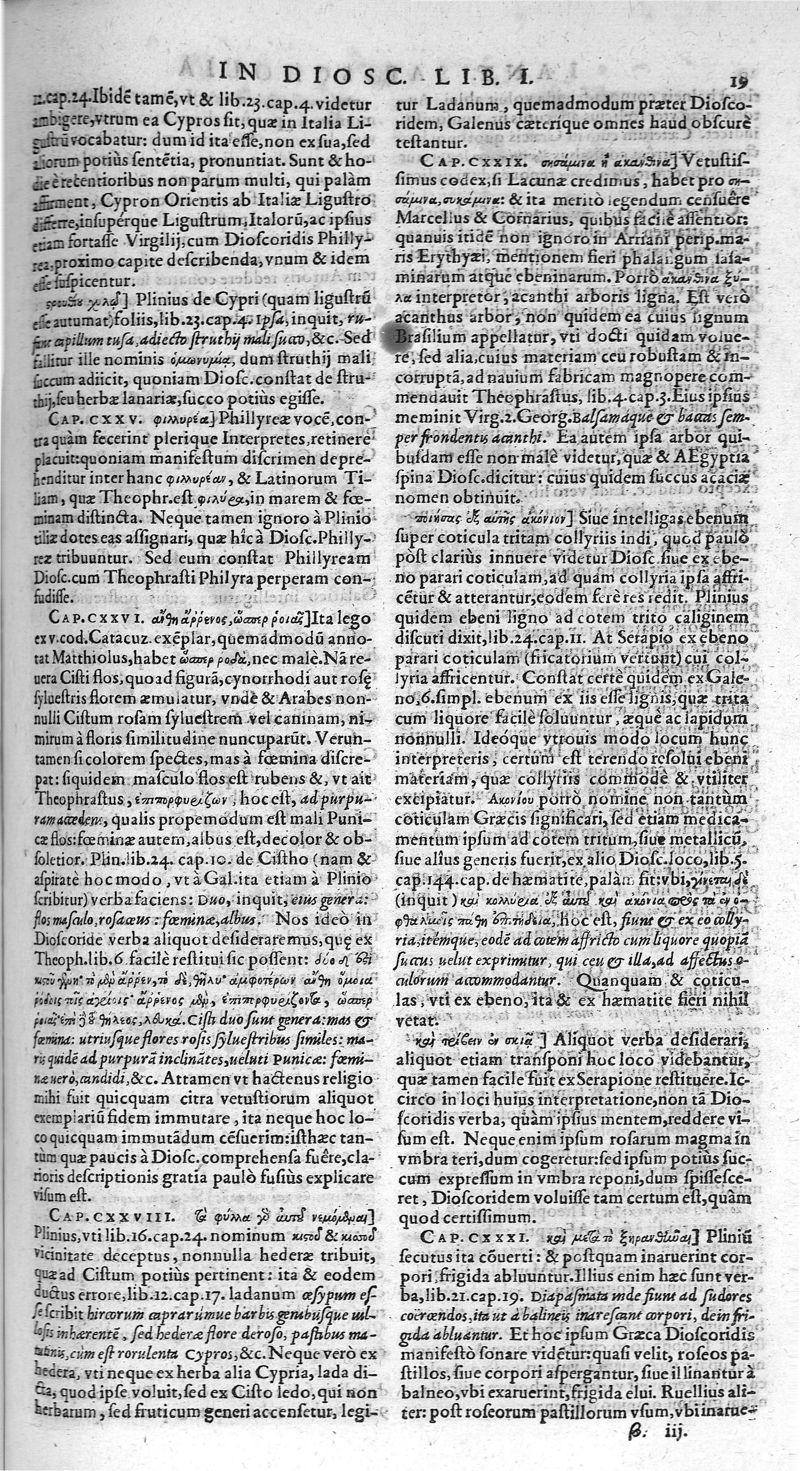 IN DIOSC. LIB. I. 19
12.cap.24. Ibidē tamē, vt & lib.23.cap.4. videtur
ambigere, vtrum ea Cypros sit, quæ in Italia Li-
gustrū vocabatur: dum id ita esse, non ex sua, sed
aliorum potiùs sentētia, pronuntiat. Sunt & ho-
die è recentioribus non parum multi, qui palàm
affirment, Cypron Orientis ab Italiæ Ligustro
differre, insupérque Ligustrum, Italorū, ac ipsius
etiam fortasse Virgilij, cum Dioscoridis Philly-
rea, proximo capite describenda, vnum & idem
esse suspicentur.
στρουθίου χυλῷ] Plinius de Cypri (quam ligustrū
esse autumat) foliis, lib.23.cap.4. Ipsa, inquit, ru-
fant capillum tusa, adiecto struthij mali succo, &c. Sed
fallitur ille nominis ὁμωνυμίᾳ, dum struthij mali
succum adiicit, quoniam Diosc. constat de stru-
thij, seu herbæ lanariæ, succo potiùs egisse.
CAP. CXXV. φιλλυρέα] Phillyreæ vocē, con-
tra quàm fecerint plerique Interpretes, retinere
placuit: quoniam manifestum discrimen depre-
henditur inter hanc φιλλυρέαν, & Latinorum Ti-
liam, quæ Theophr. est φιλύρα, in marem & fœ-
minam distincta. Neque tamen ignoro à Plinio
tiliæ dotes eas assignari, quæ hîc à Diosc. Philly-
reæ tribuuntur. Sed eum constat Phillyream
Diosc. cum Theophrasti Philyra perperam con-
fudisse.
CAP. CXXVI. ἄνθη ἄρρενος, ὥσπερ ῥοιᾶς] Ita lego
ex v. cod. Catacuz. exēplar, quemadmodū anno-
tat Matthiolus, habet ὥσπερ ῥοδὰ, nec malè. Nā re-
uera Cisti flos, quoad figurā, cynorrhodi aut rosę
syluestris florem æmulatur, vnde & Arabes non-
nulli Cistum rosam syluestrem vel caninam, ni-
mirum à floris similitudine nuncuparūt. Verun-
tamen si colorem spectes, mas à fœmina discre-
pat: siquidem masculo flos est rubens &, vt ait
Theophrastus, ἐπιπορφυρίζων, hoc est, ad purpu-
ram accedens, qualis propemodum est mali Puni-
cæ flos: fœminæ autem, albus est, decolor & ob-
soletior. Plin. lib.24. cap.10. de Cistho (nam &
aspiratè hoc modo, vt à Gal. ita etiam à Plinio
scribitur) verba faciens: Duo, inquit, eius genera:
flos masculo, rosaceus: fœminæ, albus. Nos ideò in
Dioscoride verba aliquot desideraremus, quę ex
Theoph. lib.6 facilè restitui sic possent: δύο δ' ἐστὶ
κίστου γένη· τὸ μὲν ἄρρεν, τὸ δὲ, θῆλυ· ἀμφοτέρων ἄνθη ὅμοια
ῥόδοις τοῖς ἀγρίοις· ἄρρενος μὲν, ἐπιπορφυρίζοντα, ὥσπερ
ῥοιᾶς· ἐπὶ δὲ θήλεος, λευκά. Cisti duo sunt genera: mas &
fœmina: utriusque flores rosis syluestribus similes: ma-
ris quidē ad purpurā inclinātes, ueluti Punicæ: fœmi-
næ uerò, candidi, &c. Attamen vt hactenus religio
mihi fuit quicquam citra vetustiorum aliquot
exempliariū fidem immutare, ita neque hoc lo-
co quicquam immutādum cēsuerim: isthæc tan-
tùm quæ paucis à Diosc. comprehensa fuêre, cla-
rioris descriptionis gratia paulò fusiùs explicare
visum est.
CAP. CXXVIII. τὰ φύλλα γὰρ αὐτοῦ νεμόμεναι]
Plinius, vti lib.16.cap.24. nominum κιστοῦ & κισσοῦ
vicinitate deceptus, nonnulla hederæ tribuit,
quæ ad Cistum potiùs pertinent: ita & eodem
ductus errore, lib.12.cap.17. ladanum œsypum es-
se scribit hircorum caprarúmue barbis genubúsque uil-
losis inhærentē, sed hederæ flore deroso, pastibus ma-
tutinis, cùm est rorulenta Cypros, &c. Neque verò ex
hedera, vti neque ex herba alia Cypria, lada di-
cta, quod ipse voluit, sed ex Cisto ledo, qui non
herbarum, sed fruticum generi accensetur, legi-
tur Ladanum, quemadmodum præter Diosco-
ridem, Galenus cæterique omnes haud obscurè
testantur.
CAP. CXXIX. σησάμινα ἢ ἀκάνθινα] Vetustis-
simus codex, si Lacunæ credimus, habet pro ση-
σάμινα, συκάμινα: & ita meritò legendum censuêre
Marcellus & Cornarius, quibus facilè assentior:
quanuis itidē non ignoro in Arriani perip. ma-
ris Erythræi, mentionem fieri phalangum sasa-
minarum atque ebeninarum. Porrò ἀκάνθινα ξύ-
λα interpretor, acanthi arboris ligna. Est verò
acanthus arbor, non quidem ea cuius lignum
Brasilium appellatur, vti docti quidam voluê-
re, sed alia, cuius materiam ceu robustam & in-
corruptā, ad nauium fabricam magnopere com-
mendauit Theophrastus, lib.4.cap.3. Eius ipsius
meminit Virg.2. Georg. Balsamáque & baccas sem-
per frondentis acanthi. Ea autem ipsa arbor qui-
busdam esse non malè videtur, quæ & AEgyptia
spina Diosc. dicitur: cuius quidem succus acaciæ
nomen obtinuit.
ποιήσας ἐξ αὐτῆς ἀκόνιον] Siue intelligas ebenum
super coticula tritam collyriis indi, quod paulò
pòst clariùs innuere videtur Diosc. siue ex ebe-
no parari coticulam, ad quam collyria ipsa affri-
cētur & atterantur, eodem ferè res redit. Plinius
quidem ebeni ligno ad cotem trito caliginem
discuti dixit, lib.24.cap.11. At Serapio ex ebeno
parari coticulam (fricatorium vertunt) cui col-
lyria affricentur. Constat certè quidem ex Gale-
no, 6. simpl. ebenum ex iis esse lignis, quæ trita
cum liquore facilè soluuntur, æquè ac lapidum
nonnulli. Ideóque vtrouis modo locum hunc
interpreteris, certum est terendo resolui ebeni
materiam, quæ collyriis commodè & vtiliter
excipiatur. Ἀκονίου porrò nomine non tantùm
coticulam Græcis significari, sed etiam medica-
mentum ipsum ad cotem tritum, siue metallicū,
siue alius generis fuerit, ex alio Diosc. loco, lib.5.
cap.144. cap. de hæmatite, palàm fit: vbi, γίνεται δὲ
(inquit) καὶ κολλύρια ἐξ αὐτοῦ καὶ ἀκόνια πρὸς τὰ ἐν ὀ-
φθαλμοῖς πάθη ἐπιτήδεια, hoc est, fiunt & ex eo colly-
ria, itémque, eodē ad cotem affricto cum liquore quopiā
succus uelut exprimitur, qui ceu & illa, ad affectus o-
culorum accommodantur. Quanquam & coticu-
las, vti ex ebeno, ita & ex hæmatite fieri nihil
vetat.
καὶ τρίβειν ἐν σκιᾷ] Aliquot verba desiderari,
aliquot etiam transponi hoc loco videbantur,
quæ tamen facile fuit ex Serapione restituère. Ic-
circo in loci huius interpretatione, non tā Dio-
scoridis verba, quàm ipsius mentem, reddere vi-
sum est. Neque enim ipsum rosarum magma in
vmbra teri, dum cogeretur: sed ipsum potiùs suc-
cum expressum in vmbra reponi, dum spissesce-
ret, Dioscoridem voluisse tam certum est, quàm
quod certissimum.
CAP. CXXXI. καὶ μετὰ τὸ ξηρανθῆναι] Pliniū
secutus ita cōuerti: & postquam inaruerint cor-
pori, frigida abluuntur. Illius enim hæc sunt ver-
ba, lib.21.cap.19. Diapasmata inde fiunt ad sudores
coërcendos, ita ut à balineis inarescant corpori, dein fri-
gida abluantur. Et hoc ipsum Græca Dioscoridis
manifestò sonare vidētur: quasi velit, roseos pa-
stillos, siue corpori aspergantur, siue illinantur à
balneo, vbi exaruerint, frigida elui. Ruellius ali-
ter: post roseorum pastillorum vsum, vbi inarue-
β. iij.